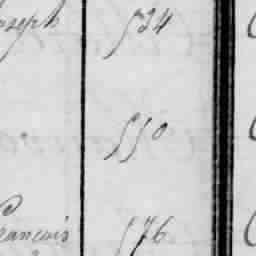 oseph 534
550
rancois 576